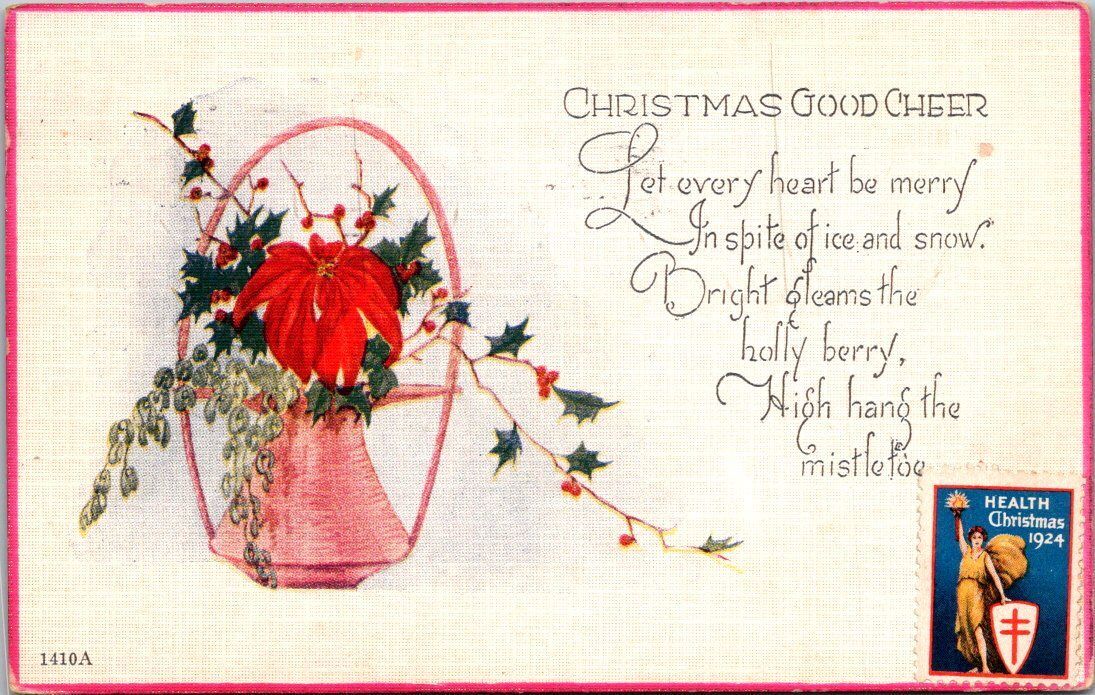 CHRISTMAS GOOD CHEER
Let every heart be merry
In spite of ice and snow.
Bright gleams the
holly berry,
High hang the
mistletoe
HEALTH
Christmas
1924
1410A